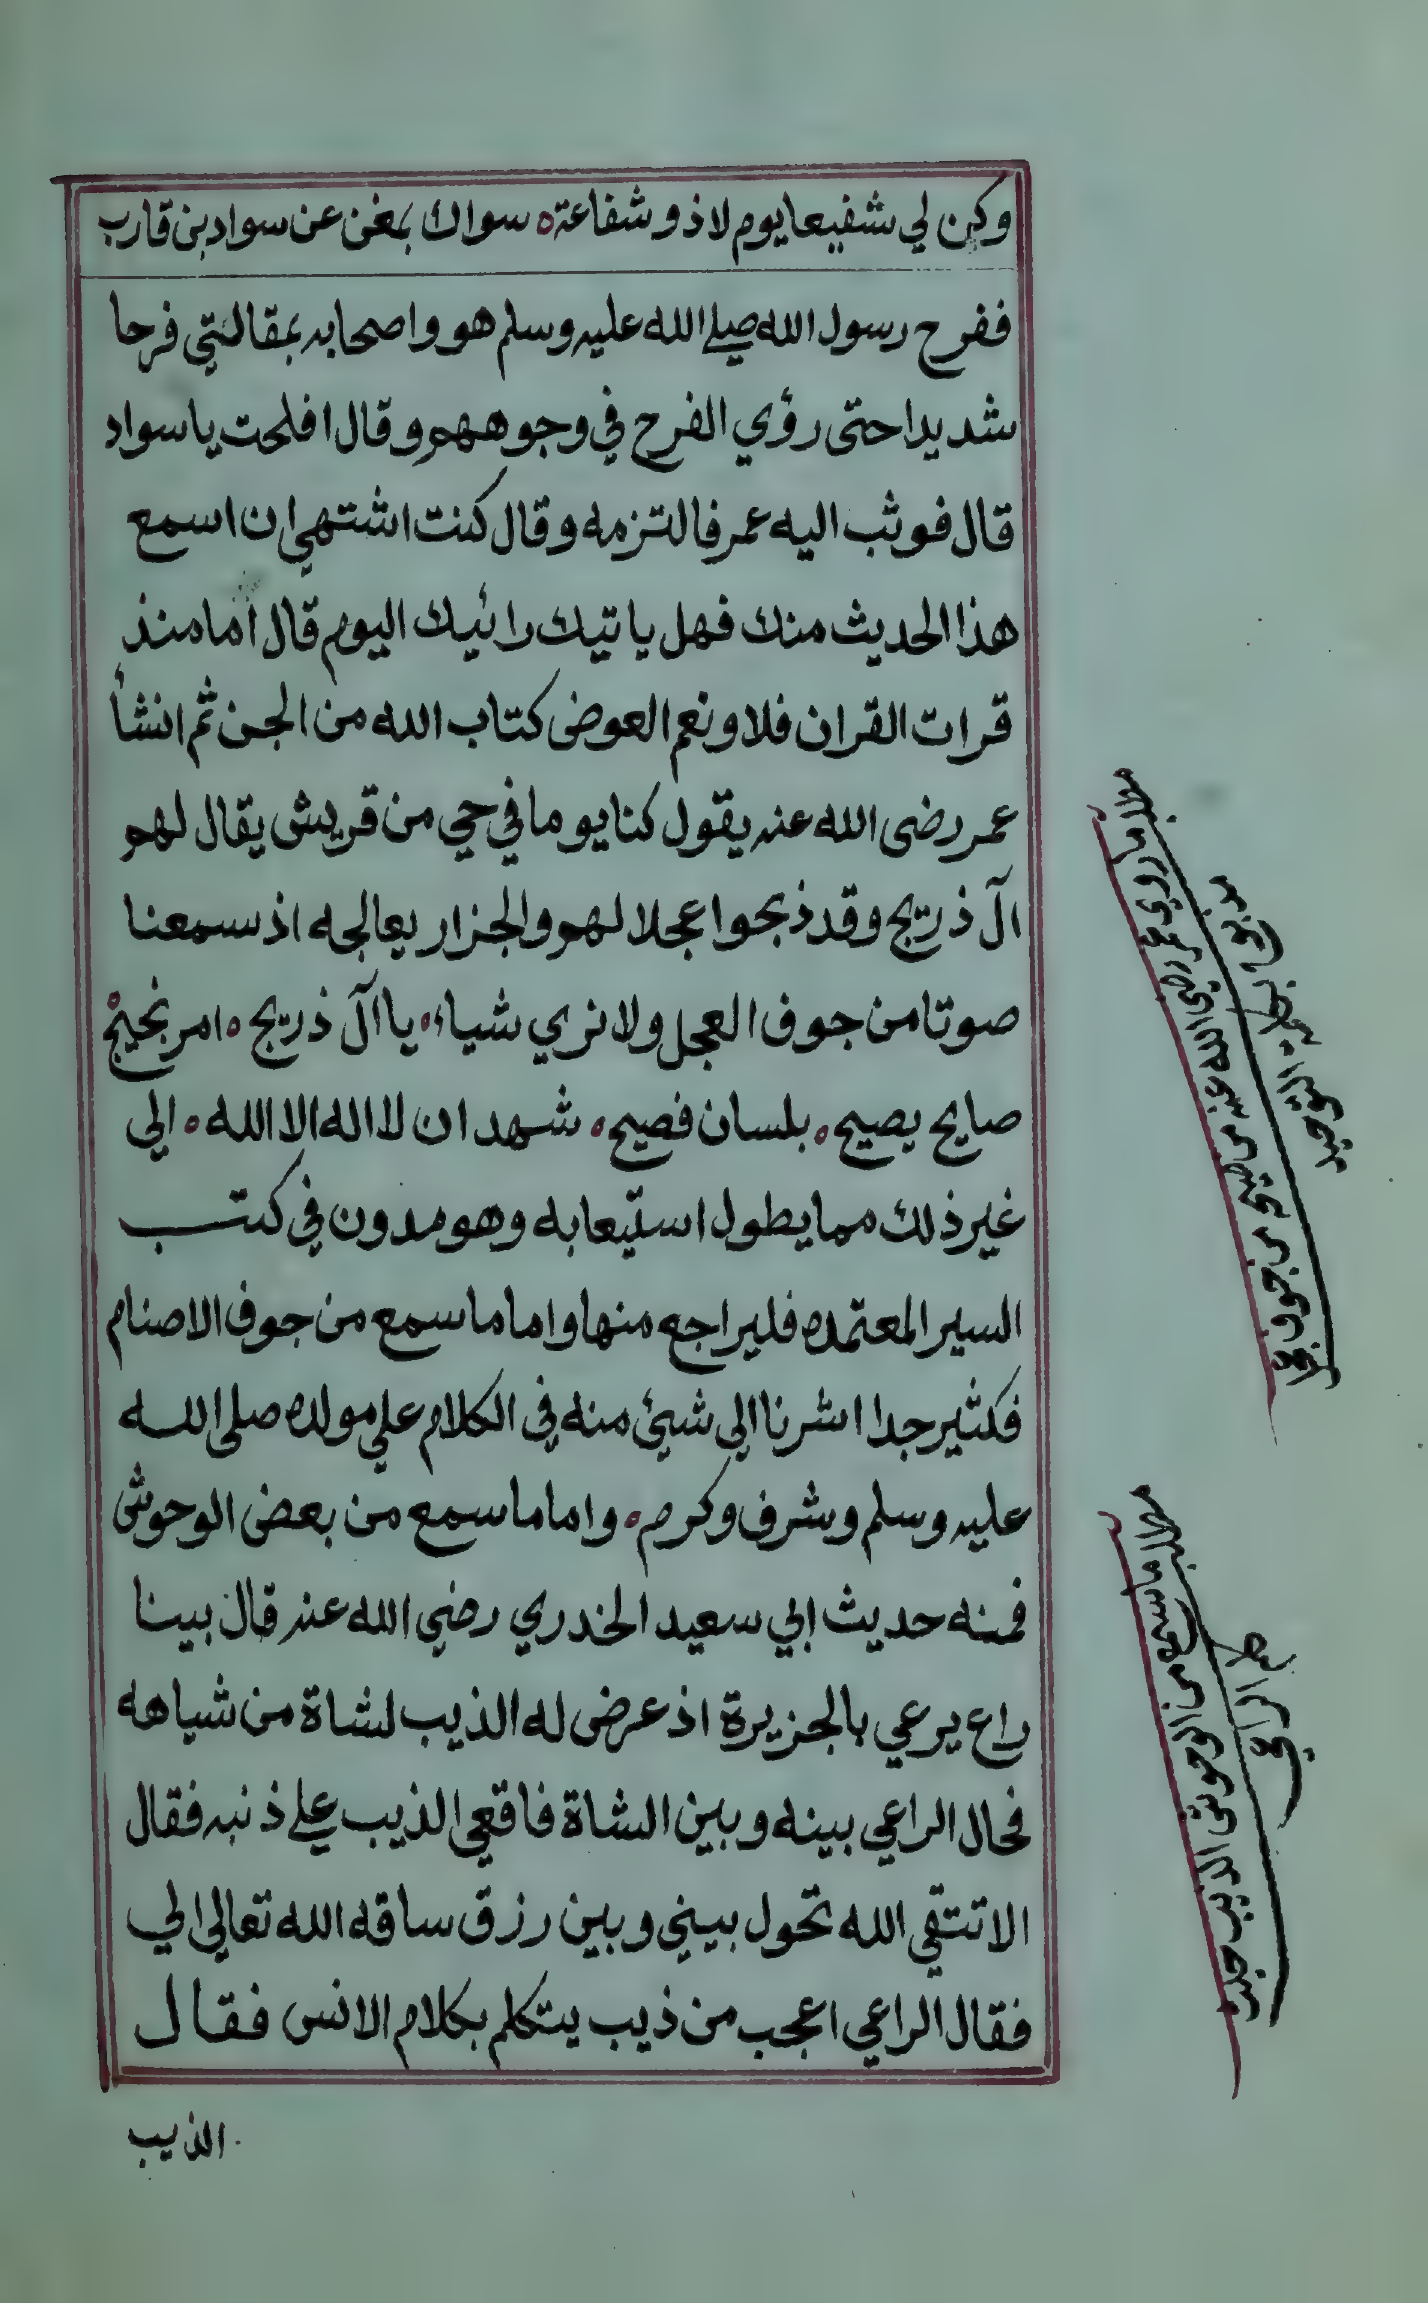 وكن لي شفيعا يوم لا ذو شفاعة ه سواك بمغن عن سواد بن قارب
ففرح رسول الله صلى الله عليه وسلم هو واصحابه بمقالتي فرحا
شديدا حتى رؤي الفرح في وجوههم وقال افلحت يا سواد
قال فوثب اليه عمر فالتزمه وقال كنت اشتهي ان اسمع
هذا الحديث منك فهل ياتيك رائيك اليوم قال اما منذ
قرات القران فلا ونعم العوض كتاب الله من الجن ثم انشأ
عمر رضى الله عنه يقول كنا يوما في حي من قريش يقال لهم
آل ذريح وقد ذبحوا عجلا لهم والجزار يعالجه اذ سمعنا
صوتا من جوف العجل ولا نري شياء ه يا آل ذريح ه امر نجيح ه
صايح يصيح ه بلسان فصيح ه شهد ان لا اله الا الله ه الي
غير ذلك مما يطول استيعابه وهو مدون في كتب
السير المعتمده فليراجع منها واما ما سمع من جوف الاصنام
فكثير جدا اشرنا الي شيئ منه في الكلام علي مولده صلى الله
عليه وسلم وشرف وكرم ه واما ما سمع من بعض الوحوش
فمنه حديث ابي سعيد الخدري رضي الله عنه قال بينا
راع يرعي بالجزيرة اذ عرض له الذيب لشاة من شياهه
فحال الراعي بينه وبين الشاة فاقعي الذيب على ذنبه فقال
الا تتقي الله تحول بيني وبين رزق ساقه الله تعالى الي
فقال الراعي اعجب من ذيب يتكلم بكلام الانس فقال
الذيب
مطلب ما روي عمر رضي الله عنه من صيح من جوف
التوحيد
مطلب ما سمع من الوحوش الذيب حيث
الراعي